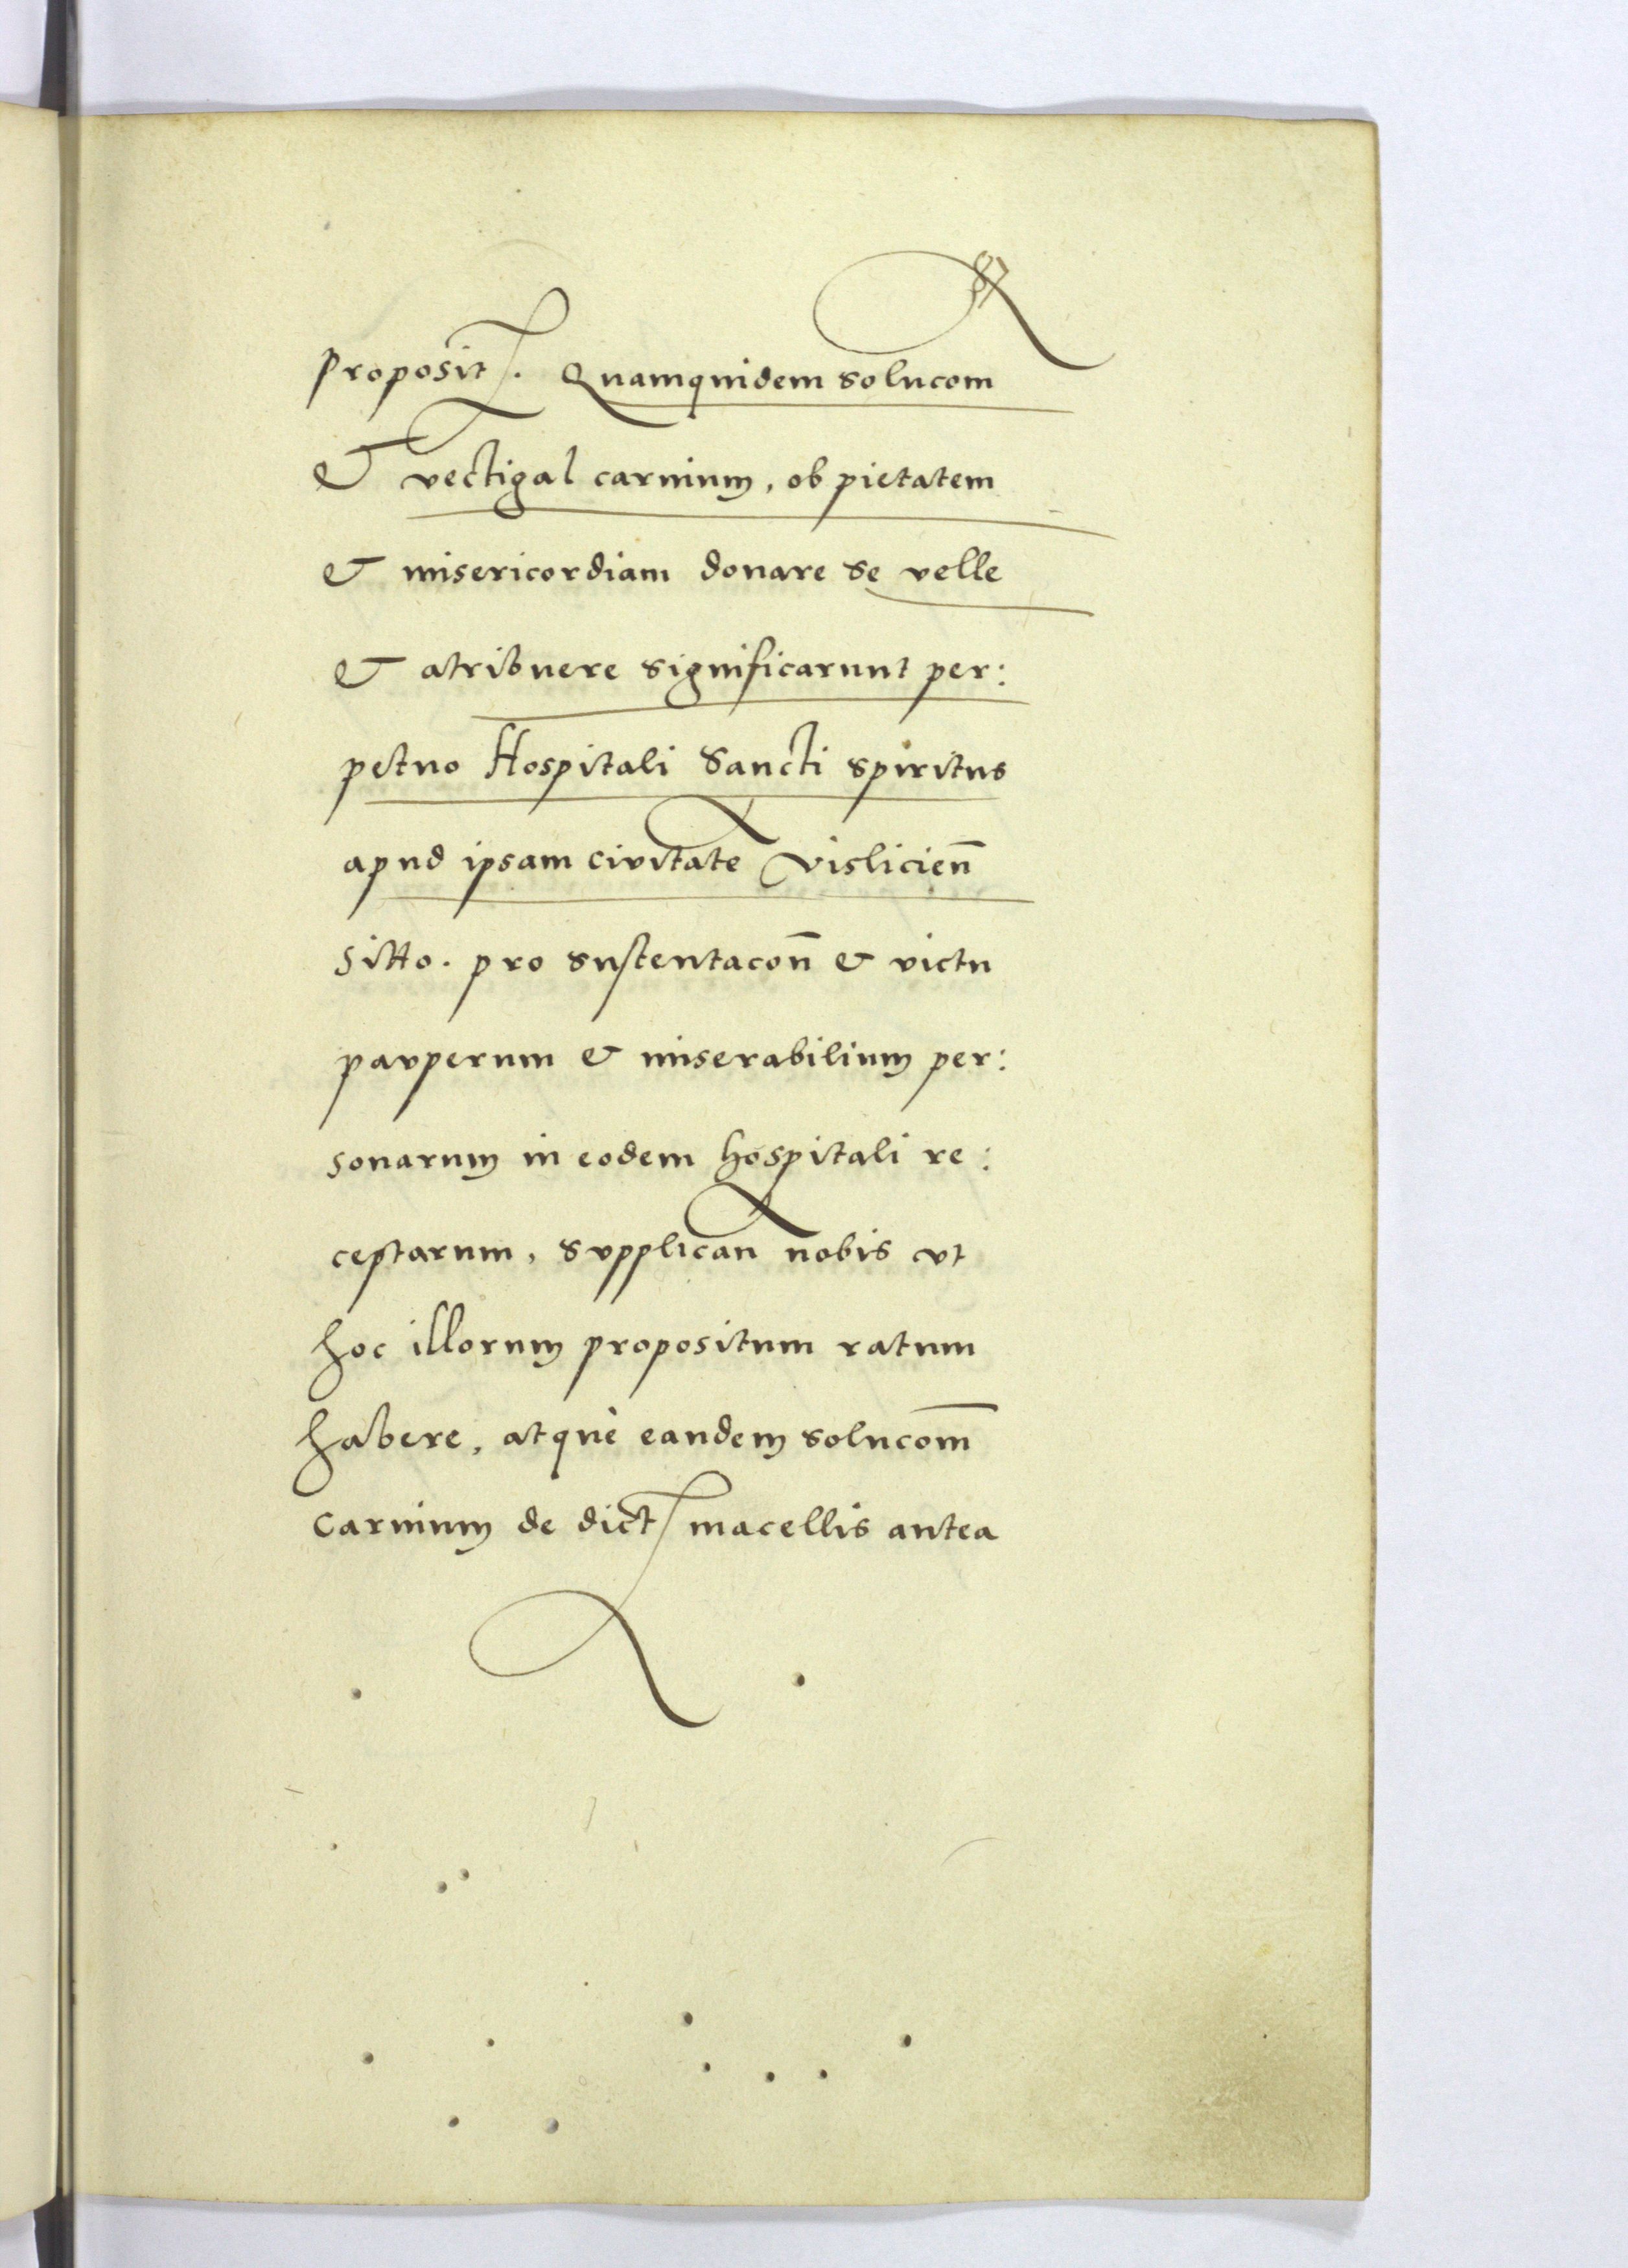 87
proposit. Quamquidem solucom
& vectigal carnium, ob pietatem
& misericordiam donare se velle
& atribuere significarunt per:
petuo Hospitali Sancti spiritus
apud ipsam civitate Vislicień
sitto. pro sustentacon̄ & victu
pauperum & miserabilium per:
sonarum in eodem hospitali re:
ceptarum, supplican nobis vt
hoc illorum propositum ratum
habere, atque eandem solucom̄
carnium de dict macellis antea